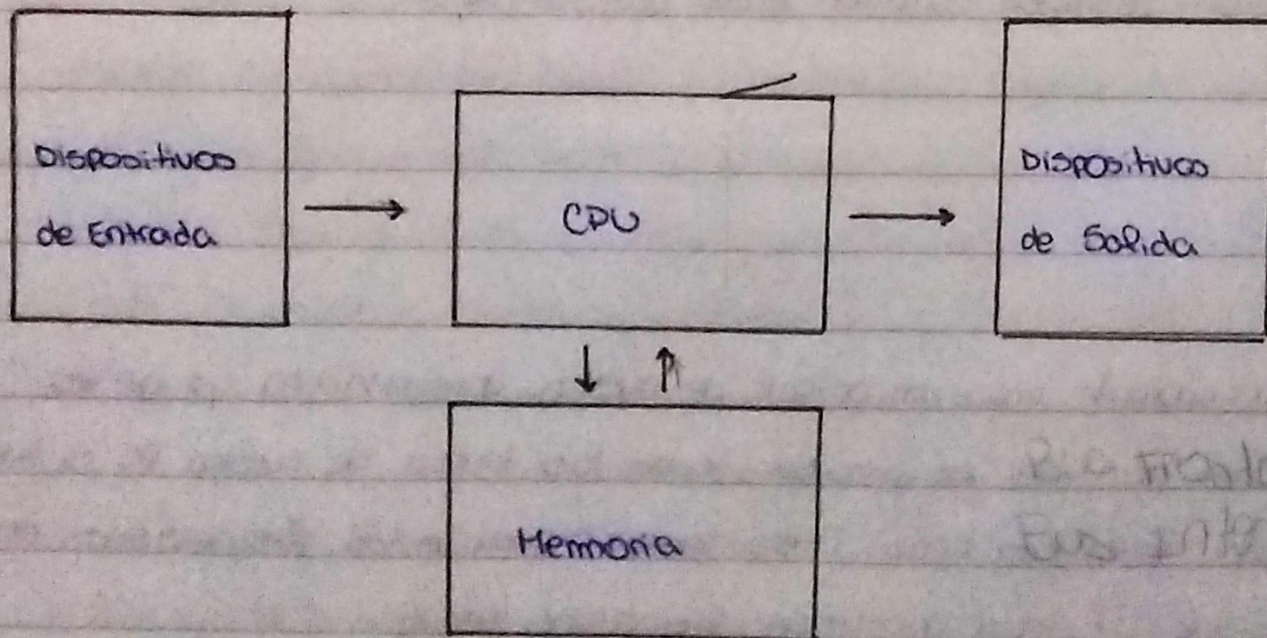 Dispositivos
de Entrada
CPU
Dispositivos
de Salida
Memoria